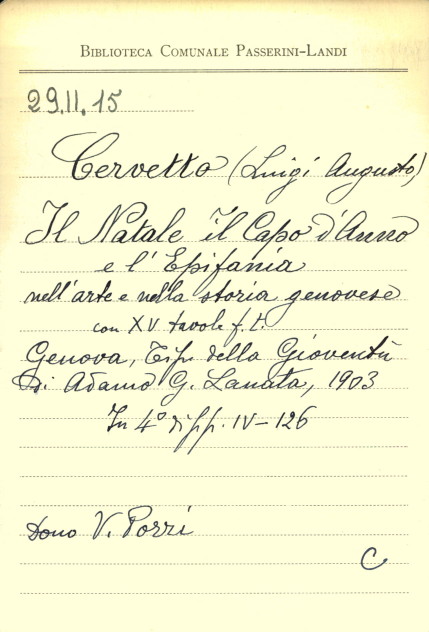 BIBLIOTECA COMUNALE PASSERINI-LANDI
29.II.15
Cervetto (Luigi Augusto)
Il Natale il Capo d'Anno
e l'Epifania
nell'arte e nella storia genovese
con XV tavole f. t.
Genova, Tip. della Gioventù
di Adamo G. Lanata, 1903
In 4° di pp. IV-126
Dono V. Porri
C